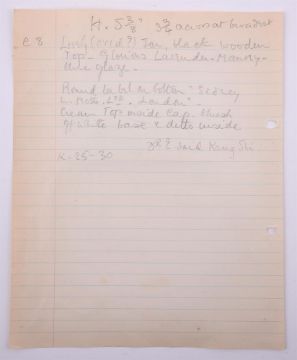 H. 5 3/8" 3 3/8 across at broadest
C 8. Leys (cov'd?) Jar, black wooden
Top - Glorious Lavender - Manny-
blue glaze.
Round label on bottom "Sidney
L. Moss. Ltd. London".
Cream Top inside Cap. thick
off white base & ditto inside
Said Kang Shi
K-25-30